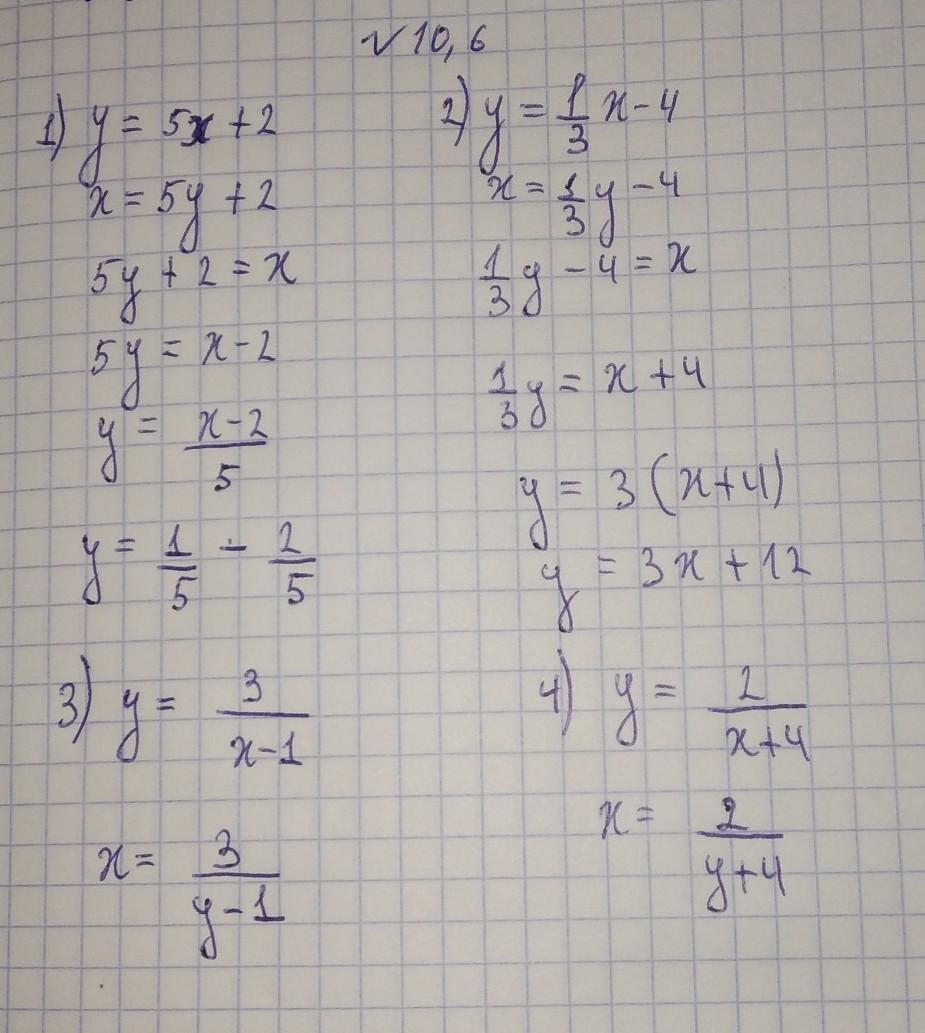 √10,6
1) y = 5x + 2
x = 5y + 2
5y + 2 = x
5y = x - 2
y = (x - 2)/5
y = 1/5 - 2/5
2) y = 1/3 x - 4
x = 1/3 y - 4
1/3 y - 4 = x
1/3 y = x + 4
y = 3(x + 4)
y = 3x + 12
3) y = 3/(x - 1)
x = 3/(y - 1)
4) y = 2/(x + 4)
x = 2/(y + 4)